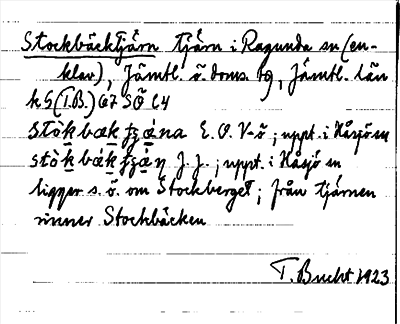 Stockbäcktjärn tjärn i Ragunda sn (en-
klav), Jämtl. ö. doms. tg, Jämtl. län
k5 (T.B.) G7 SÖ C4
stòkbækʃʒána E. O. V-ö ; uppt. i Håsjö sn
stòkbækʃʒán J. J. ; uppt. i Håsjö sn
ligger s. ö. om Stockberget ; från tjärnen
rinner Stockbäcken
T. Bucht 1923